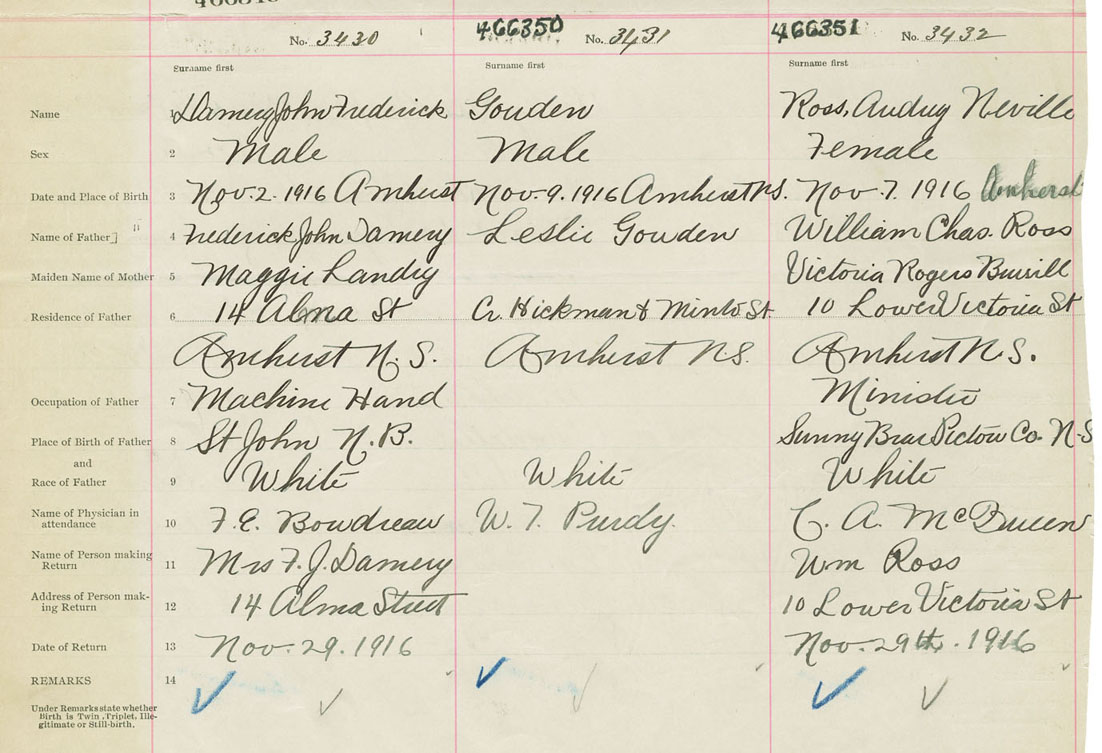 No. 3430 466350 No. 3431 466351 No. 3432
Surname first Surname first Surname first
Name 1 Damery John Frederick Gouden Ross, Audrey Neville
Sex 2 Male Male Female
Date and Place of Birth 3 Nov. 2. 1916 Amherst Nov. 9. 1916 Amherst N.S. Nov. 7. 1916 Amherst
Name of Father 4 Frederick John Damery Leslie Gouden William Chas. Ross
Maiden Name of Mother 5 Maggie Landry Victoria Rogers Burrill
Residence of Father 6 14 Alma St Cr. Hickman & Minto St. 10 Lower Victoria St
Amherst N.S. Amherst N.S. Amherst N.S.
Occupation of Father 7 Machine Hand Minister
Place of Birth of Father 8 St John N.B. Sunny Brae Pictou Co. N-S
and
Race of Father 9 White White White
Name of Physician in
attendance 10 F. E. Bowdreau W. T. Purdy. C. A. McQueen
Name of Person making
Return 11 Mrs F. J. Damery Wm Ross
Address of Person mak-
ing Return 12 14 Alma Street 10 Lower Victoria St
Date of Return 13 Nov. 29. 1916 Nov. 29th. 1916
REMARKS 14
Under Remarks state whether
Birth is Twin, Triplet, Ille-
gitimate or Still-birth.